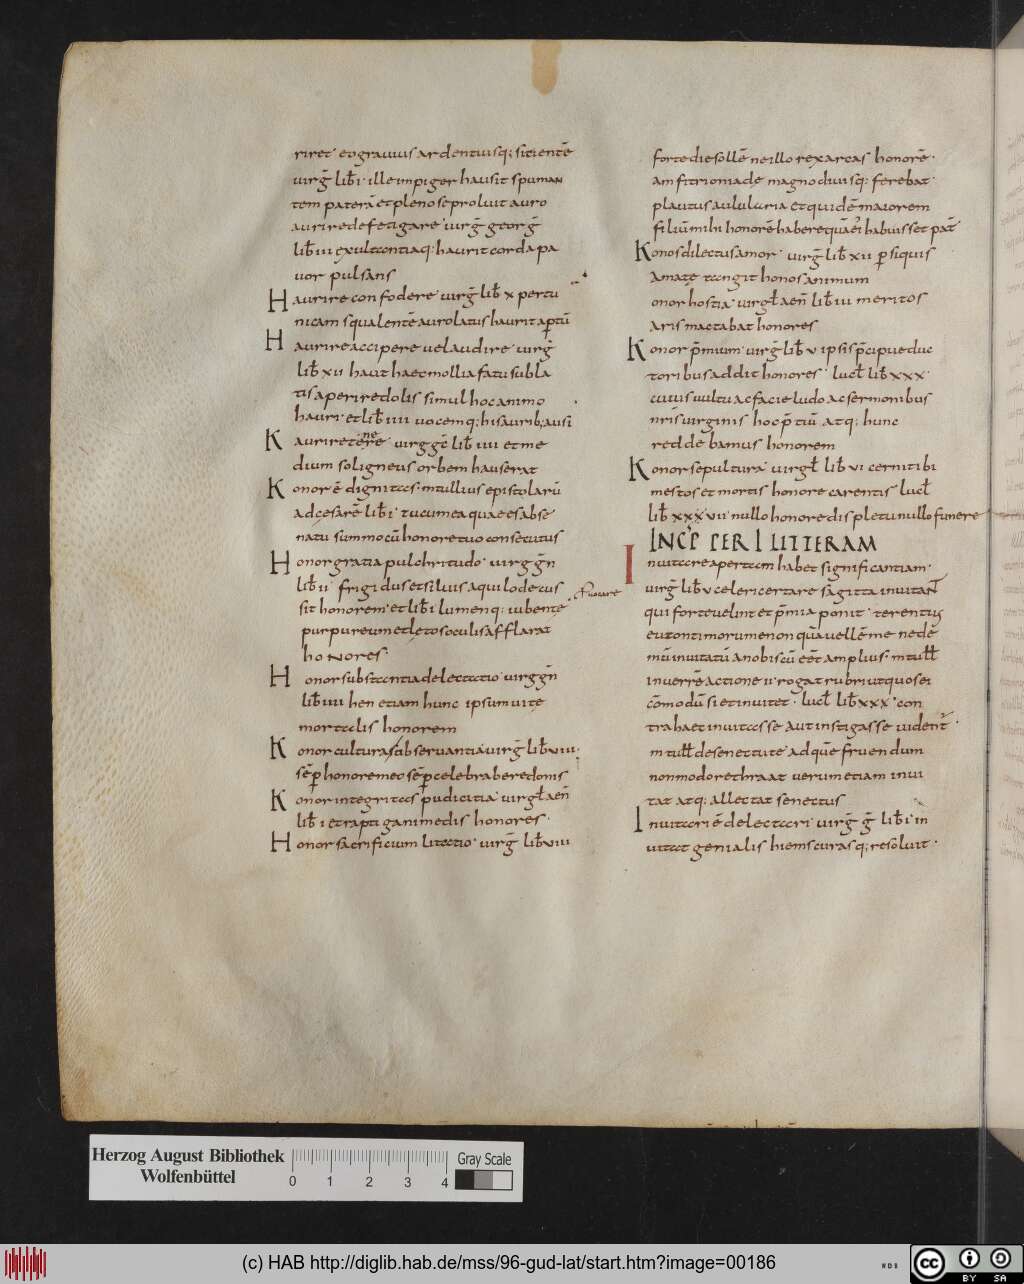 riret et gravius ardentiusq; sitientē
virḡ lib̄ i · ille impiger hausit spuman
tem paterā et pleno se proluit auro
aurire defetigare · virḡ georḡ
lib̄ iii exultantiaq; haurit corda pa
vor pulsans
Haurire confodere virḡ lib̄ x pertu
nicam squalentē auro latus haurit aptū
Haurire accipere vel audire virḡ
lib̄ xii hauit haec mollia fatu subla
tis aperire dolis simul hoc animo
hauri · et lib̄ iiii vocemq; his aurib; ausi
Kaurire terere virḡ ḡc lib̄ iiii et me
ne
dium sol igneus orbem hauserat
Konor ē dignitas · m tullius epistolarū
ad cesarē lib̄ i · tu cum ea quae es abse
natu summo cū honore tuo consecutus
Honor gratia pulchritudo · virḡ ḡn
lib̄ ii · frigidus et silvis aquilo decus
sit honorem · et lib̄ i lumenq; iubente
purpureum et lętos oculis afflarat
honores ·
Honor substantia delectatio virḡ ḡn
lib̄ iiii hen etiam hunc ipsum vite
mortalis honorem
Konor cultura observantia virḡ lib̄ viii ·
sēp honorem eo sēp celebrabere donis
Konor integritas pudicitia · virgl̄ aen̄
lib̄ i et rapti ganimedis honores ·
Honor sacrificium litatio · virḡ lib̄ viii
forte die sollē ne illo rex arcas honorē ·
amfitrioniade magno divisq; ferebat ·
plautus aulularia et quidē maiorem
filiū mihi honorē habere quā ei habuisset pat̄
Konos dilectus amor · virḡ lib̄ xii p siquis
amatę tangit honos animum
onor hostia virgl̄ aen̄ lib̄ iii meritos
aris mactabat honores
Konor p̄mium · virḡ lib̄ v ipsis p̄cipue duc
toribus addit honores · lucl̄ lib̄ xxx ·
cuius vultu ac facie ludo ac sermonibus
nr̄is virginis hoc p̄tiū atq; hunc
reddē bamus honorem
Konor sepultura · virgl̄ lib̄ vi cernit ibi
mestos et mortis honore carentis lucl̄
lib̄ xxxvii · nullo honore dis pletu nullo funere
INCP̄ PER I LITTERAM
Invitare apertam habet significantiam ·
virḡ lib̄ v celeri certare sagitta invitat
qui forte velint et p̄mia ponit · terentius
eutontimorumenon quā vellē me nedē
mū invitatū a nobis cū eēt amplius · m tull̄
in verrē actione ii · rogat rubri ut quos ei
cōmodū si et invitet · lucl̄ lib̄ xxx · con
trahaet invitasse aut instigasse videnẗ ·
m tull̄ de senectute ad que fruendum
non modo rethraat verum etiam invi
tat atq; allectat senectus
Invitari ē delectari virḡ ḡ lib̄ i in
vitat genialis hiems curasq; resolvit ·
Herzog August Bibliothek
Wolfenbüttel
0 1 2 3 4
Gray Scale
(c) HAB http://diglib.hab.de/mss/96-gud-lat/start.htm?image=00186
WDB
cc BY SA